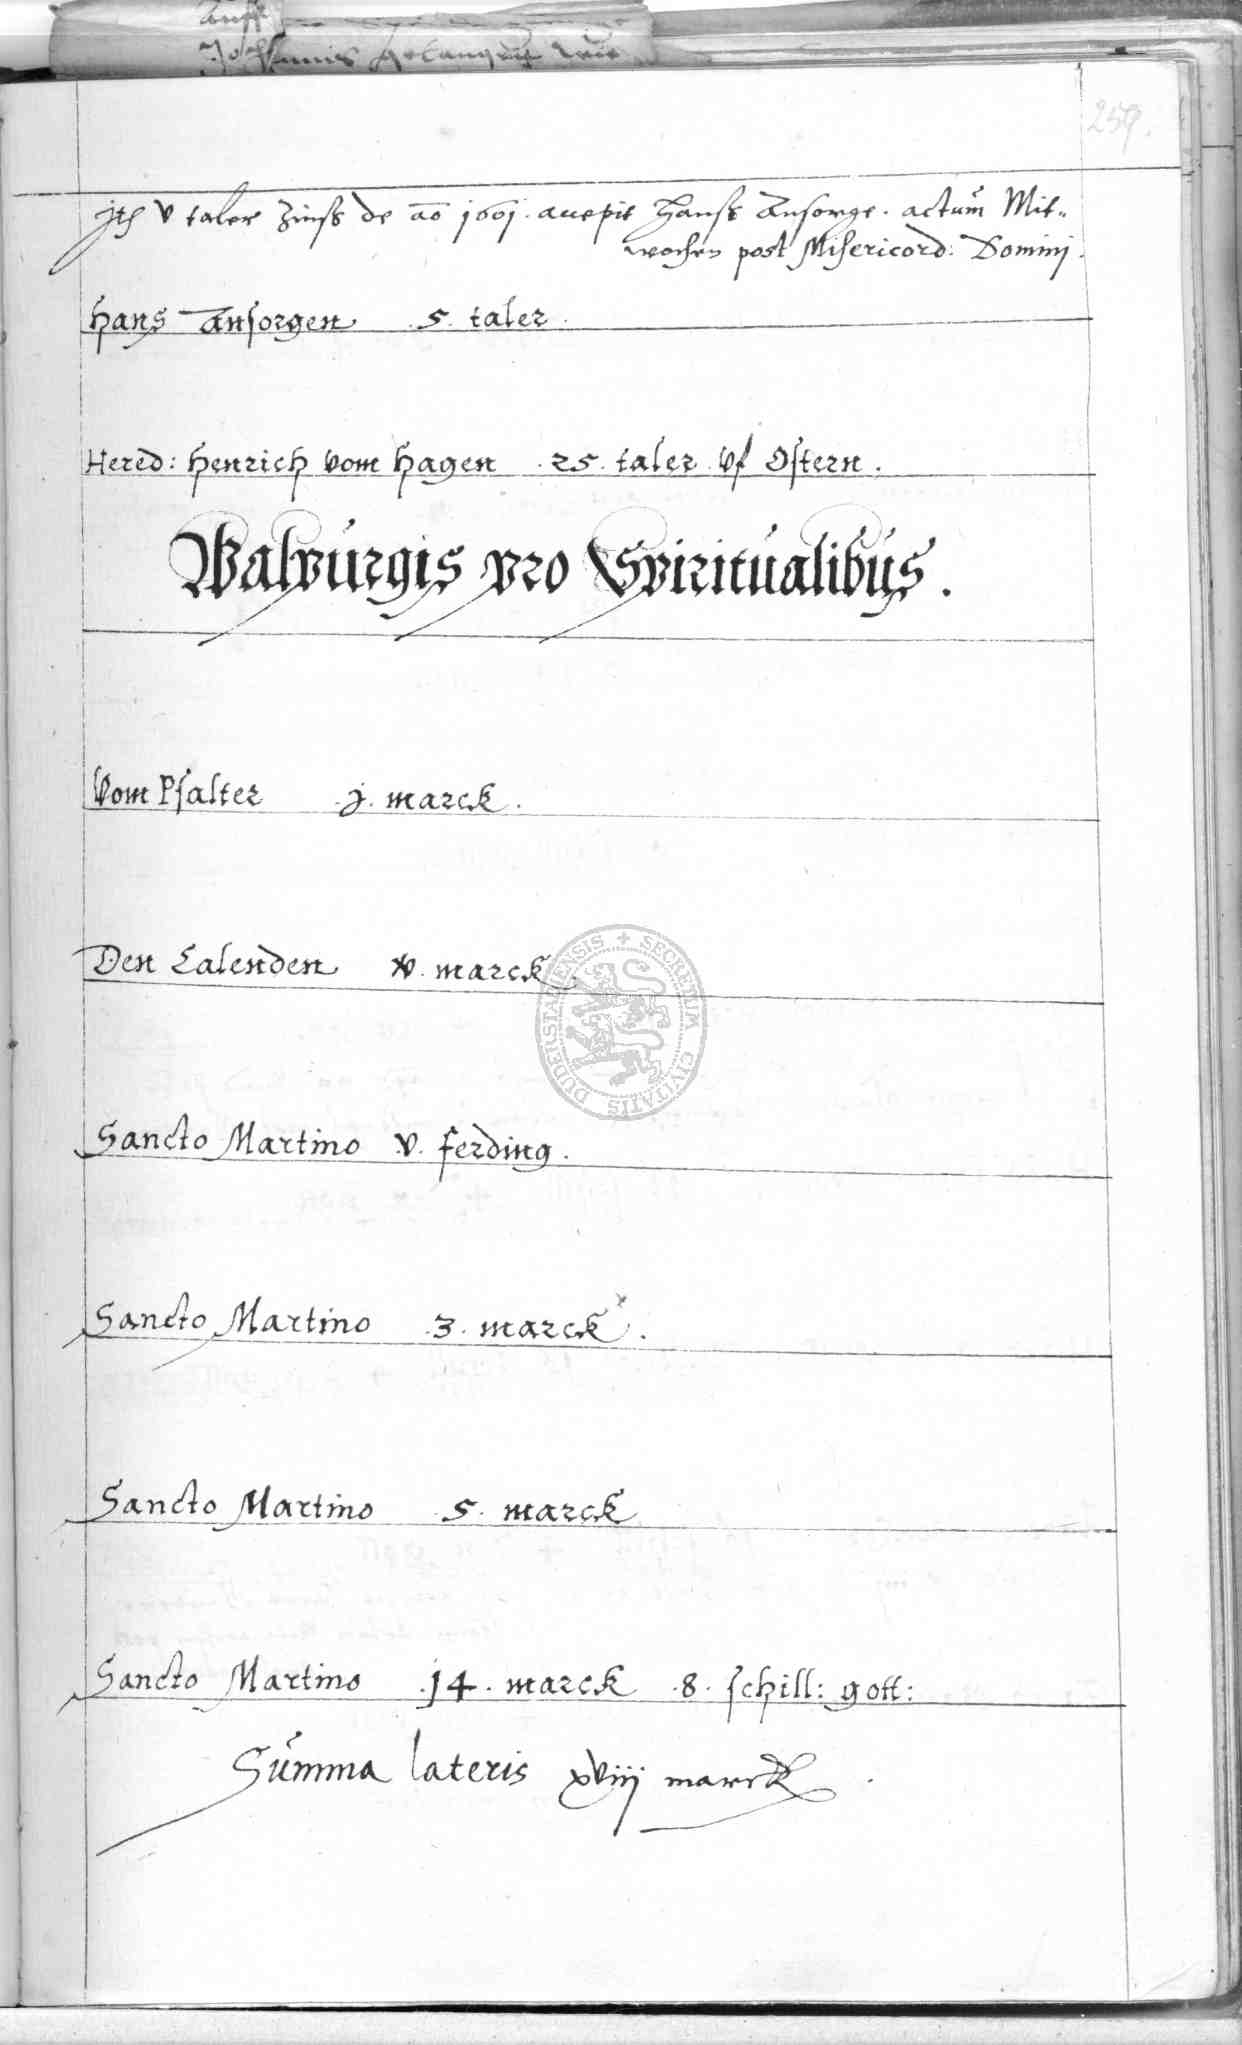 259.
Jtem v taler Zinß de ao 1601. accepit Hanß Ansorge. actum Mit-
wochen post Misericord: Domini.
Hans Ansorgen 5. taler.
Hered: Henrich vom Hagen .25. taler vf Ostern.
Walpurgis pro Spiritualibus.
Vom Psalter .j. marck.
Den Calenden v. marck.
DUDERSTADIENSIS + SECRETUM CIVITATIS
Sancto Martino .v. ferding.
Sancto Martino .3. marck.
Sancto Martino .5. marck
Sancto Martino .14. marck .8. schill: gott:
Summa lateris xviij marck.